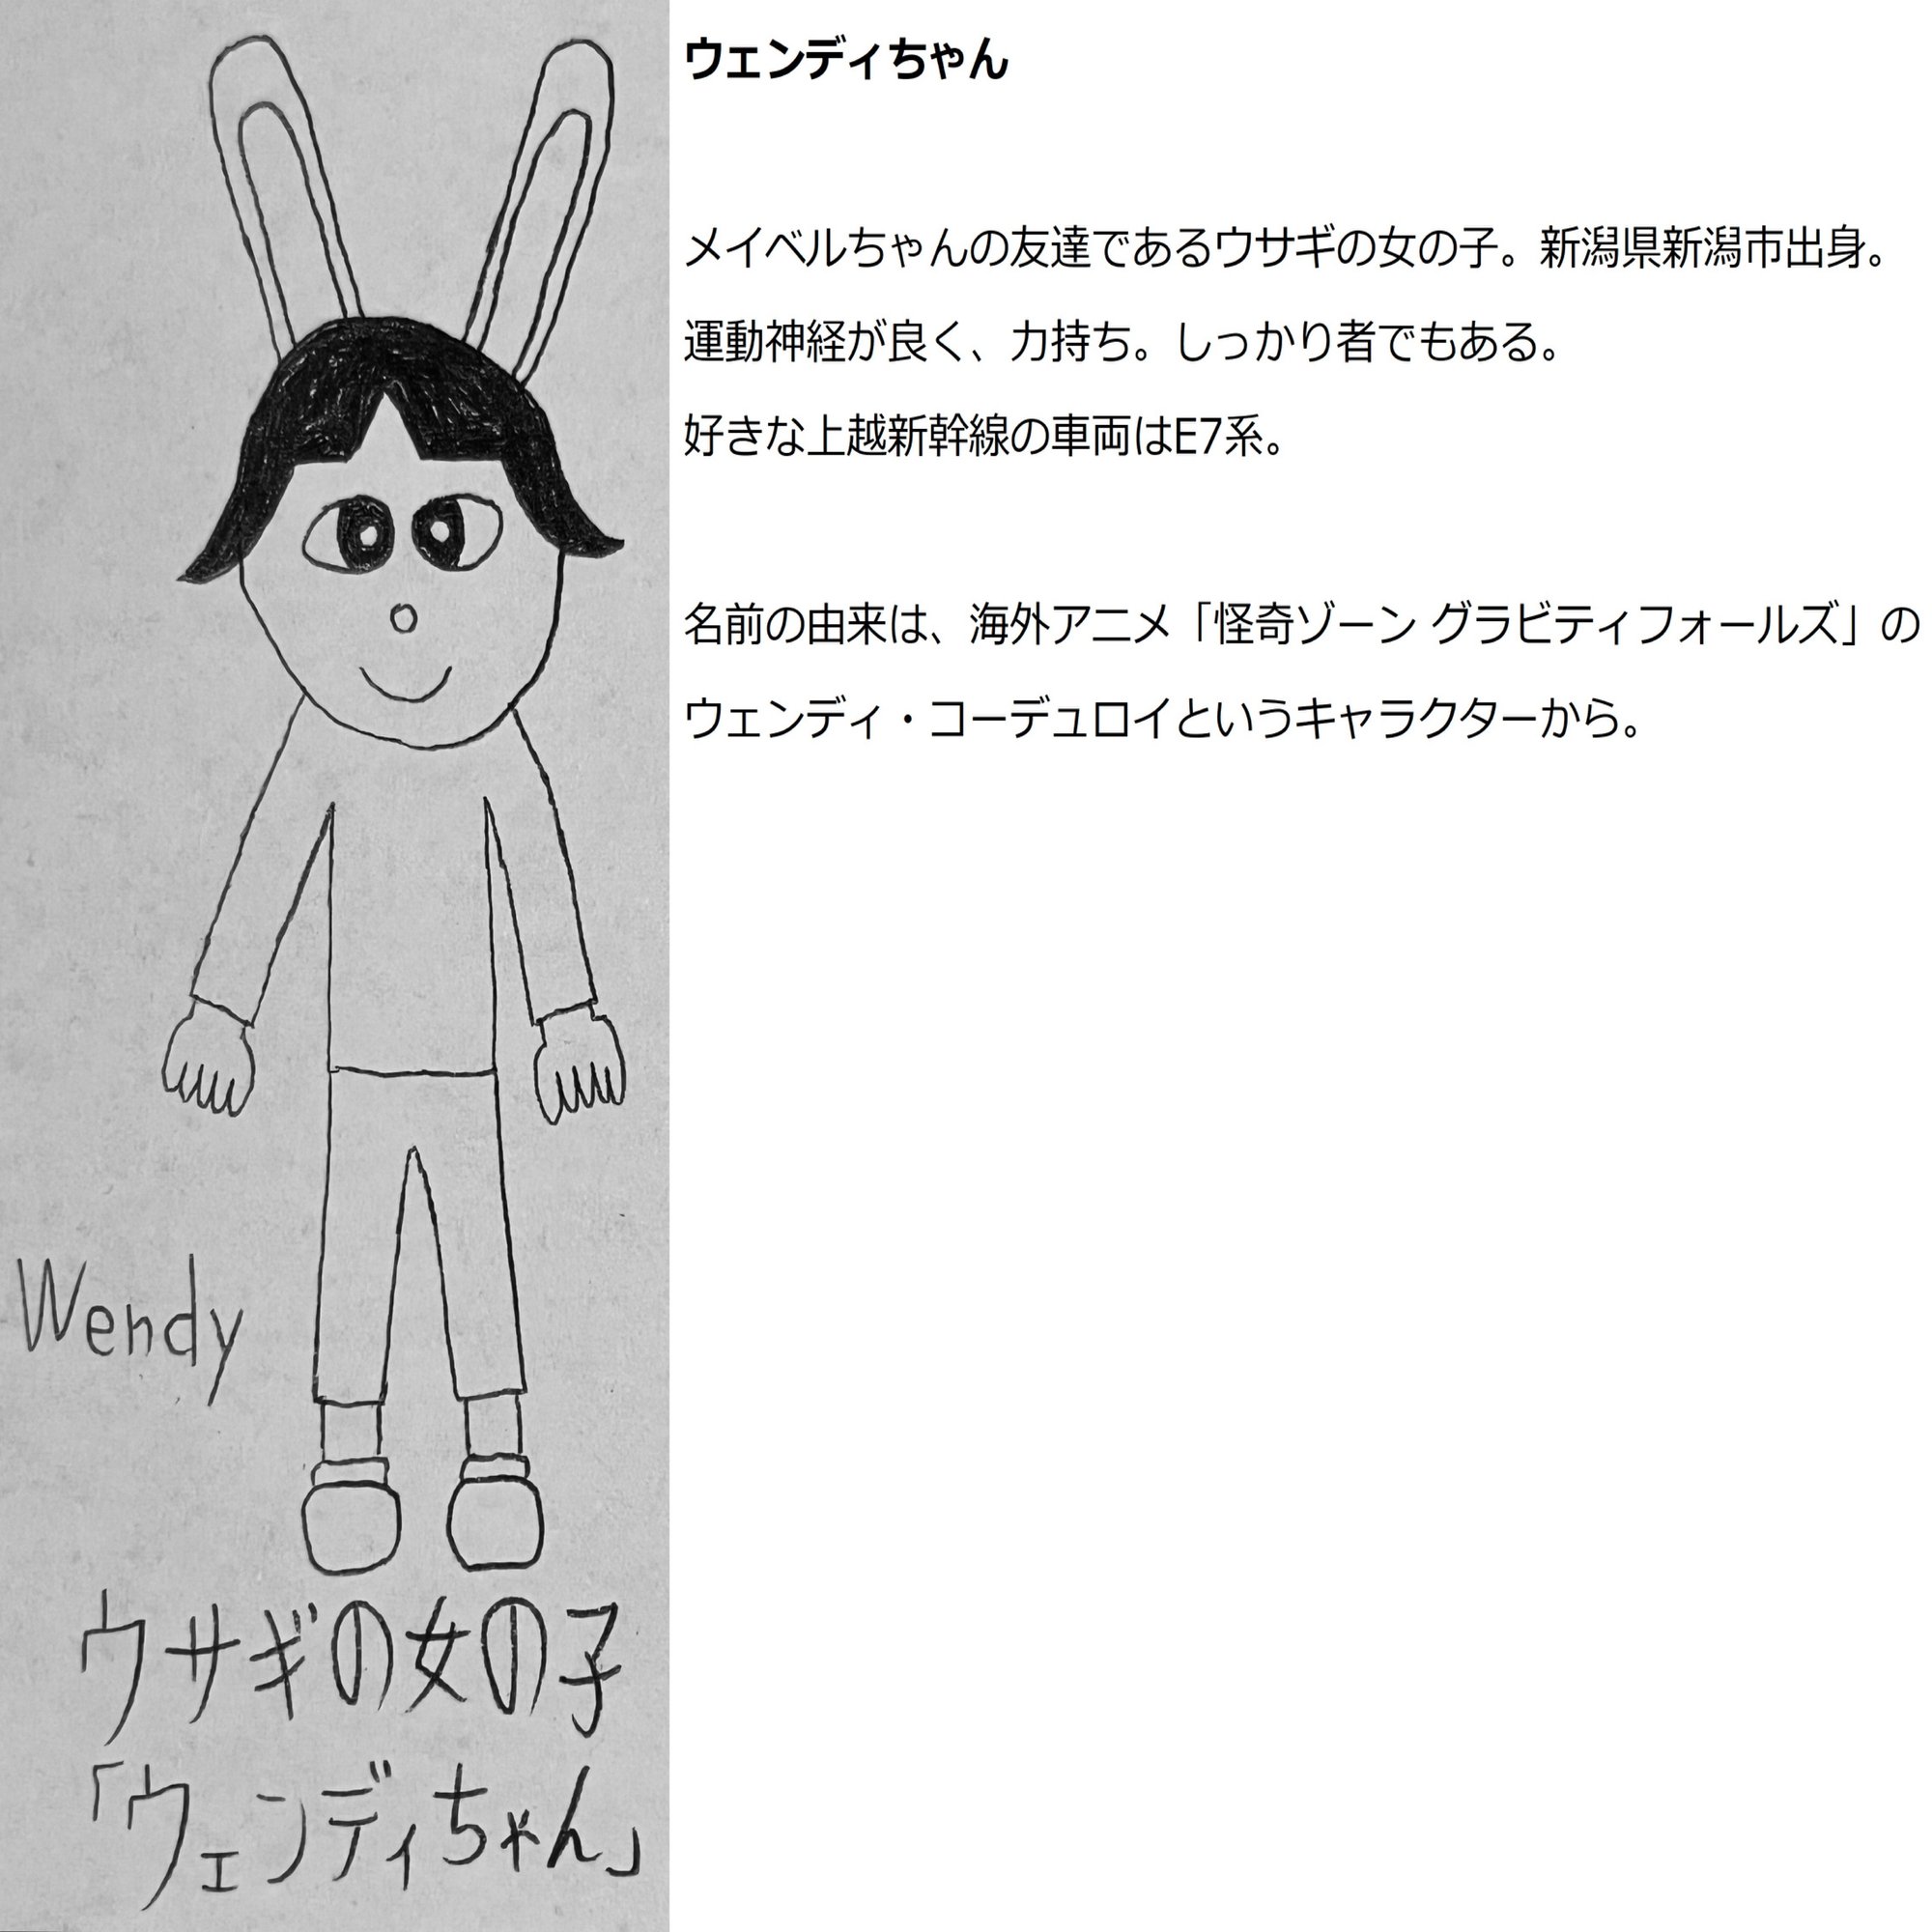 ウェンディちゃん
メイベルちゃんの友達であるウサギの女の子。新潟県新潟市出身。
運動神経が良く、力持ち。しっかり者でもある。
好きな上越新幹線の車両はE7系。
名前の由来は、海外アニメ「怪奇ゾーン グラビティフォールズ」の
ウェンディ・コーデュロイというキャラクターから。
Wendy
ウサギの女の子
「ウェンディちゃん」